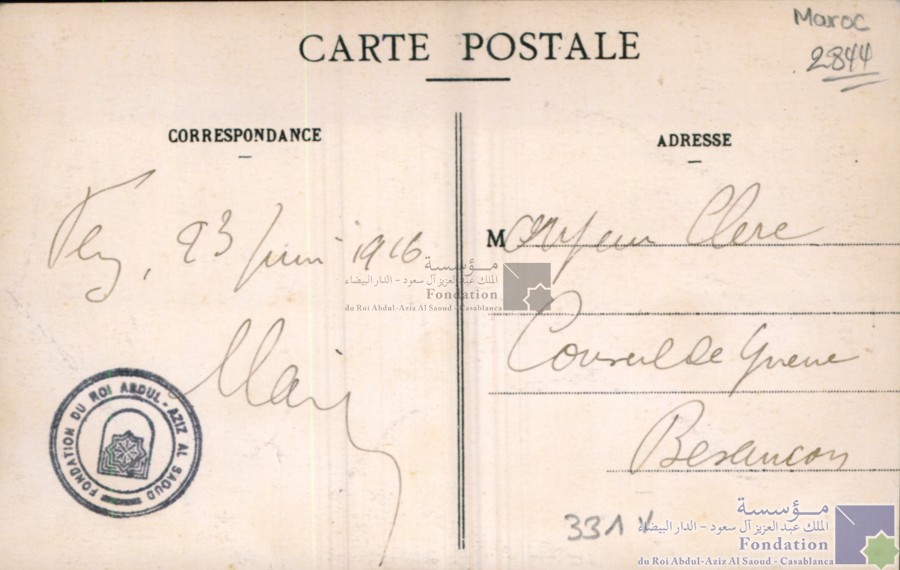 Maroc
2844
CARTE POSTALE
CORRESPONDANCE
Fez, 23 juin 1916
ADRESSE
Monsieur Clerc
Conseil de Guerre
Besançon
331
FONDATION DU ROI ABDUL-AZIZ AL SAOUD
مؤسسة
الملك عبد العزيز آل سعود - الدار البيضاء
Fondation
du Roi Abdul-Aziz Al Saoud - Casablanca
مؤسسة
الملك عبد العزيز آل سعود - الدار البيضاء
Fondation
du Roi Abdul-Aziz Al Saoud - Casablanca